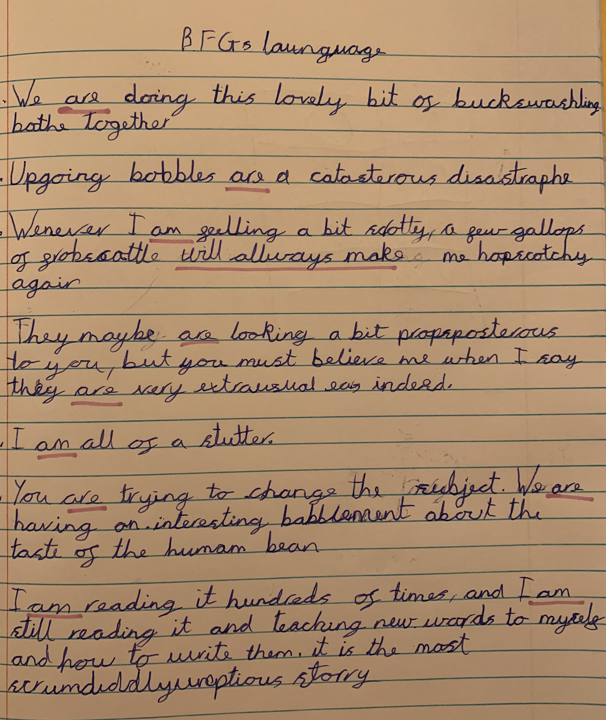 BFGs launguage
. We are doing this lovely bit of buckswashling
bothe together
. Upgoing bobbles are a catasterous disastraphe
. Wenever I am geelling a bit scotty, a few gallops
of grobscattle will allways make me hopscotchy
again
They maybe are looking a bit propsposterous
to you, but you must believe me when I say
they are very extrausual eas indeed.
. I am all of a stutter.
. You are trying to change the subject. We are
having an interesting babblement about the
taste of the humam bean
I am reading it hundreds of times, and I am
still reading it and teaching new words to myself
and how to write them. it is the most
scrumdiddlyumptious storry